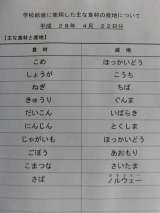 学校給食に使用した主な食材の産地について
平成 28年 4月 22日分
【主な食材と産地】
食材 産地
こめ ほっかいどう
しょうが こうち
ねぎ ちば
きゅうり ぐんま
だいこん いばらき
にんじん とくしま
じゃがいも ほっかいどう
ごぼう あおもり
こまつな さいたま
さば ノルウェー